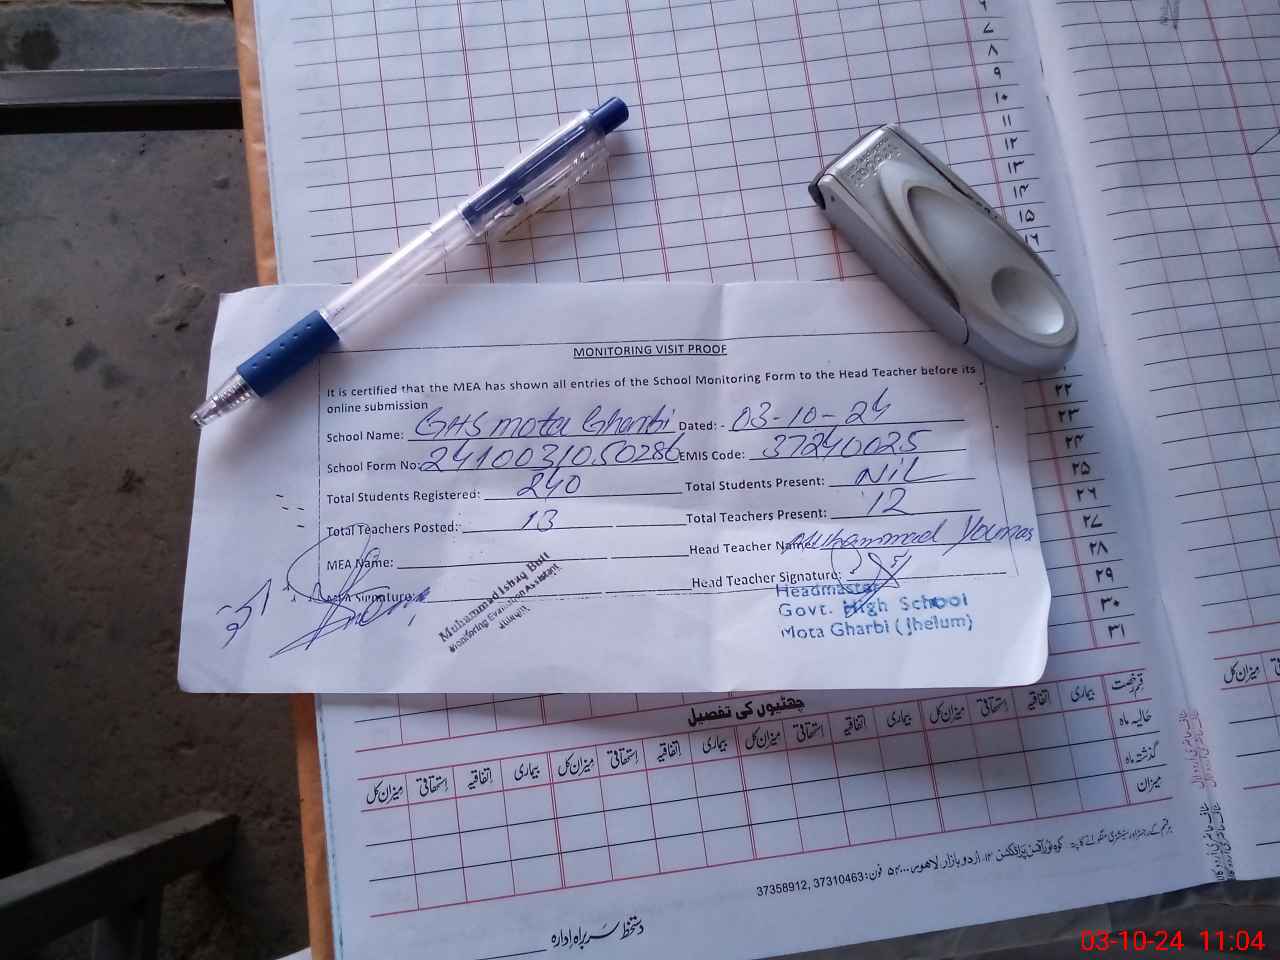 ۷
۸
۹
۱۰
۱۱
۱۲
۱۳
۱۴
۱۵
۱۶
MONITORING VISIT PROOF
It is certified that the MEA has shown all entries of the School Monitoring Form to the Head Teacher before its
online submission
School Name: GHS mota Gharbi Dated: - 03-10-24
School Form No: 2410031050286 EMIS Code: 37240025
Total Students Registered: 240 Total Students Present: Nil
Total Teachers Posted: 13 Total Teachers Present: 12
MEA Name: Head Teacher Name: Muhammad Younas
MEA Signature: Head Teacher Signature:
Muhammad Ishaq Butt
Monitoring Evaluation Assistant
Headmaster
Govt. High School
Mota Gharbi (Jhelum)
۲۲
۲۳
۲۴
۲۵
۲۶
۲۷
۲۸
۲۹
۳۰
۳۱
چھٹیوں کی تفصیل
قسم رخصت بیماری اتفاقیہ استحقاقی میزان کل بیماری اتفاقیہ استحقاقی میزان کل بیماری اتفاقیہ استحقاقی میزان کل بیماری اتفاقیہ استحقاقی میزان کل
حالیہ ماہ
گذشتہ ماہ
میزان
اردو بازار لاہور فون: 37310463, 37358912
دستخط سربراہ ادارہ
میزان کل
03-10-24 11:04